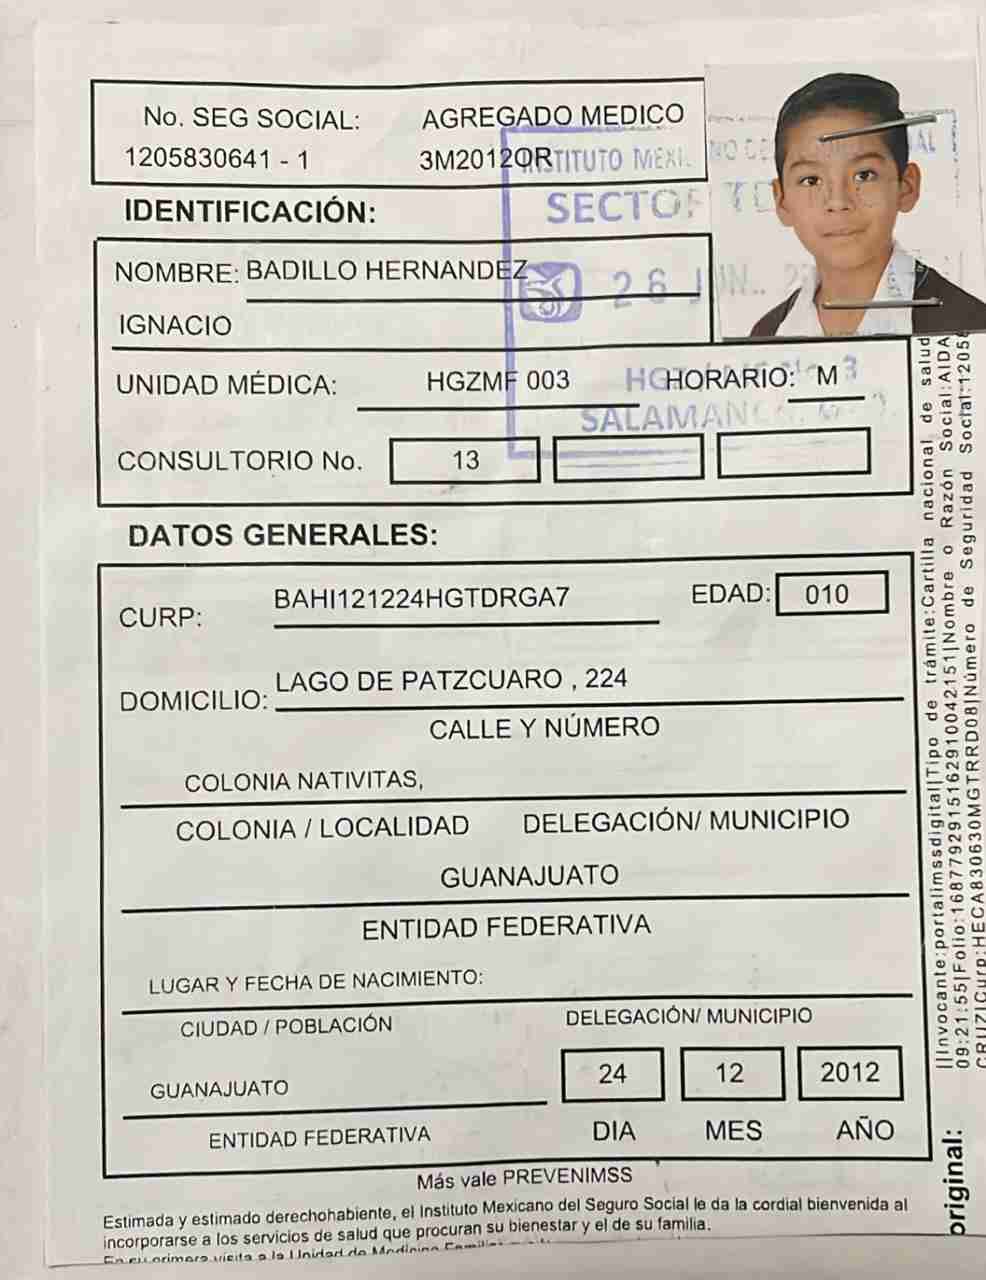 No. SEG SOCIAL: AGREGADO MEDICO
1205830641 - 1 3M2012OR
INSTITUTO MEXI
SECTOR
26 JUN.
SALAMANCA
IDENTIFICACIÓN:
NOMBRE: BADILLO HERNANDEZ
IGNACIO
UNIDAD MÉDICA: HGZMF 003 HORARIO: M
CONSULTORIO No. 13
DATOS GENERALES:
CURP: BAHI121224HGTDRGA7 EDAD: 010
DOMICILIO: LAGO DE PATZCUARO , 224
CALLE Y NÚMERO
COLONIA NATIVITAS,
COLONIA / LOCALIDAD DELEGACIÓN/ MUNICIPIO
GUANAJUATO
ENTIDAD FEDERATIVA
LUGAR Y FECHA DE NACIMIENTO:
CIUDAD / POBLACIÓN DELEGACIÓN/ MUNICIPIO
GUANAJUATO 24 12 2012
ENTIDAD FEDERATIVA DIA MES AÑO
Más vale PREVENIMSS
Estimada y estimado derechohabiente, el Instituto Mexicano del Seguro Social le da la cordial bienvenida al
incorporarse a los servicios de salud que procuran su bienestar y el de su familia.
En su primera visita a la Unidad de Medicina
||Invocante:portalimssdigital|Tipo de trámite:Cartilla nacional de salud
09:21:55|Folio:1687792915162910042151|Nombre o Razón Social:AIDA
CRUZ|Curp:HECA830630MGTRRD08|Número de Seguridad Social:12058
original: